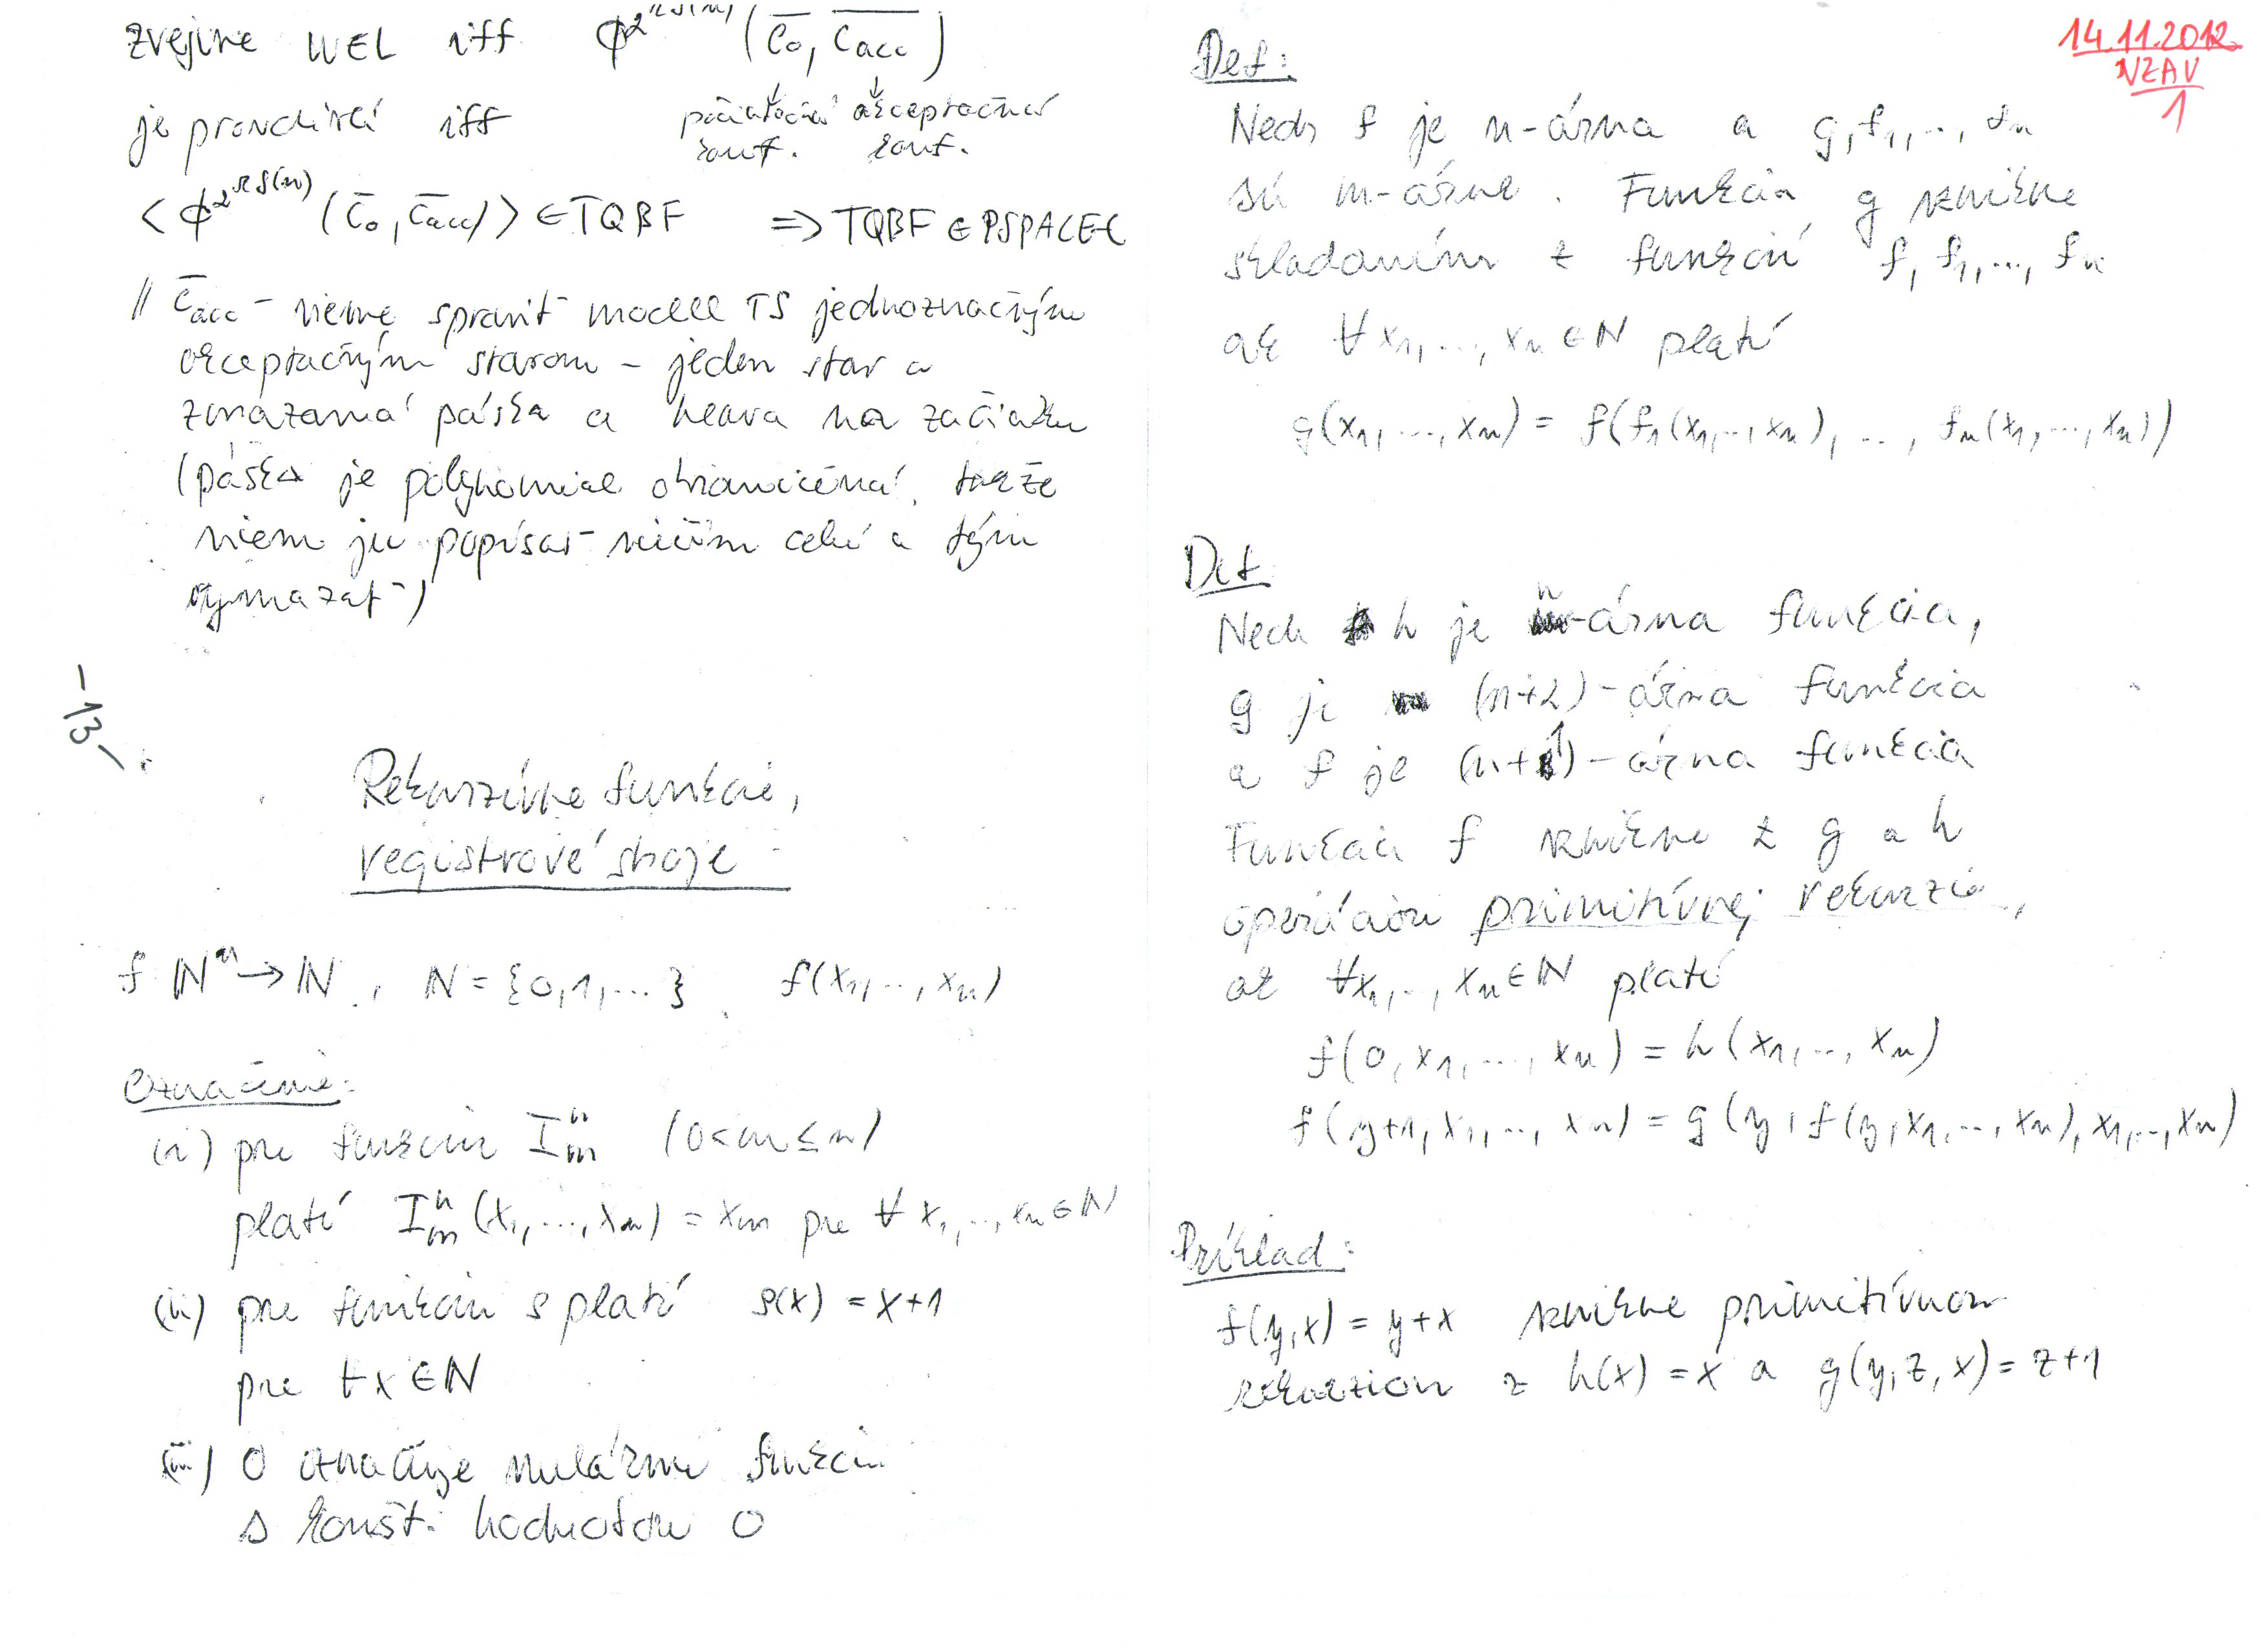 zrejme w∈L iff ϕ^{2^{rS(n)}}(c̄₀, c̄acc)
je pravdivá iff
počiatočná konf.
akceptačná konf.
<ϕ^{2^{rS(n)}}(c̄₀, c̄acc)> ∈ TQBF => TQBF ∈ PSPACE-C
// c̄acc - vieme spraviť model TS jednoznačným
akceptačným stavom - jeden stav a
zmazaná páska a hlava na začiatku
(páska je polynomial. ohraničená, takže
viem ju popísať niečím celú a tým
vymazať)
-13-
Rekurzívne funkcie,
registrové stroje
f: ℕⁿ → ℕ, ℕ = {0,1,...}, f(x₁,..,xₙ)
Označenie:
(i) pre funkciu Iₘⁿ (0<m≤n)
platí Iₘⁿ(x₁,...,xₙ) = xₘ pre ∀x₁,..,xₙ∈ℕ
(ii) pre funkciu s platí s(x) = x+1
pre ∀x∈ℕ
(iii) 0 označuje nulárnu funkciu
s konšt. hodnotou 0
14.11.2012
NZAV
1
Def:
Nech f je n-árna a g, f₁,..., fₙ
sú m-árne. Funkcia g vznikne
skladaním z funkcií f, f₁,..., fₙ
ak ∀x₁,...,xₘ∈ℕ platí
g(x₁,...,xₘ) = f(f₁(x₁,..,xₘ), ..., fₙ(x₁,...,xₘ))
Def
Nech h je n-árna funkcia,
g je (n+2)-árna funkcia
a f je (n+1)-árna funkcia
Funkcia f vznikne z g a h
operáciou primitívnej rekurzie,
ak ∀x₁,..,xₙ∈ℕ platí
f(0,x₁,...,xₙ) = h(x₁,..,xₙ)
f(y+1,x₁,..,xₙ) = g(y,f(y,x₁,..,xₙ),x₁,..,xₙ)
Príklad:
f(y,x) = y+x vznikne primitívnou
rekurziou z h(x) = x a g(y,z,x) = z+1